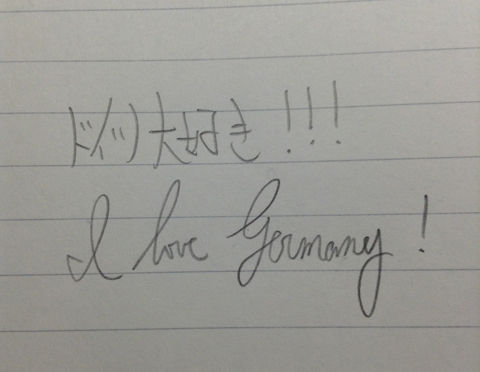 ドイツ大好き!!!
I love Germany!